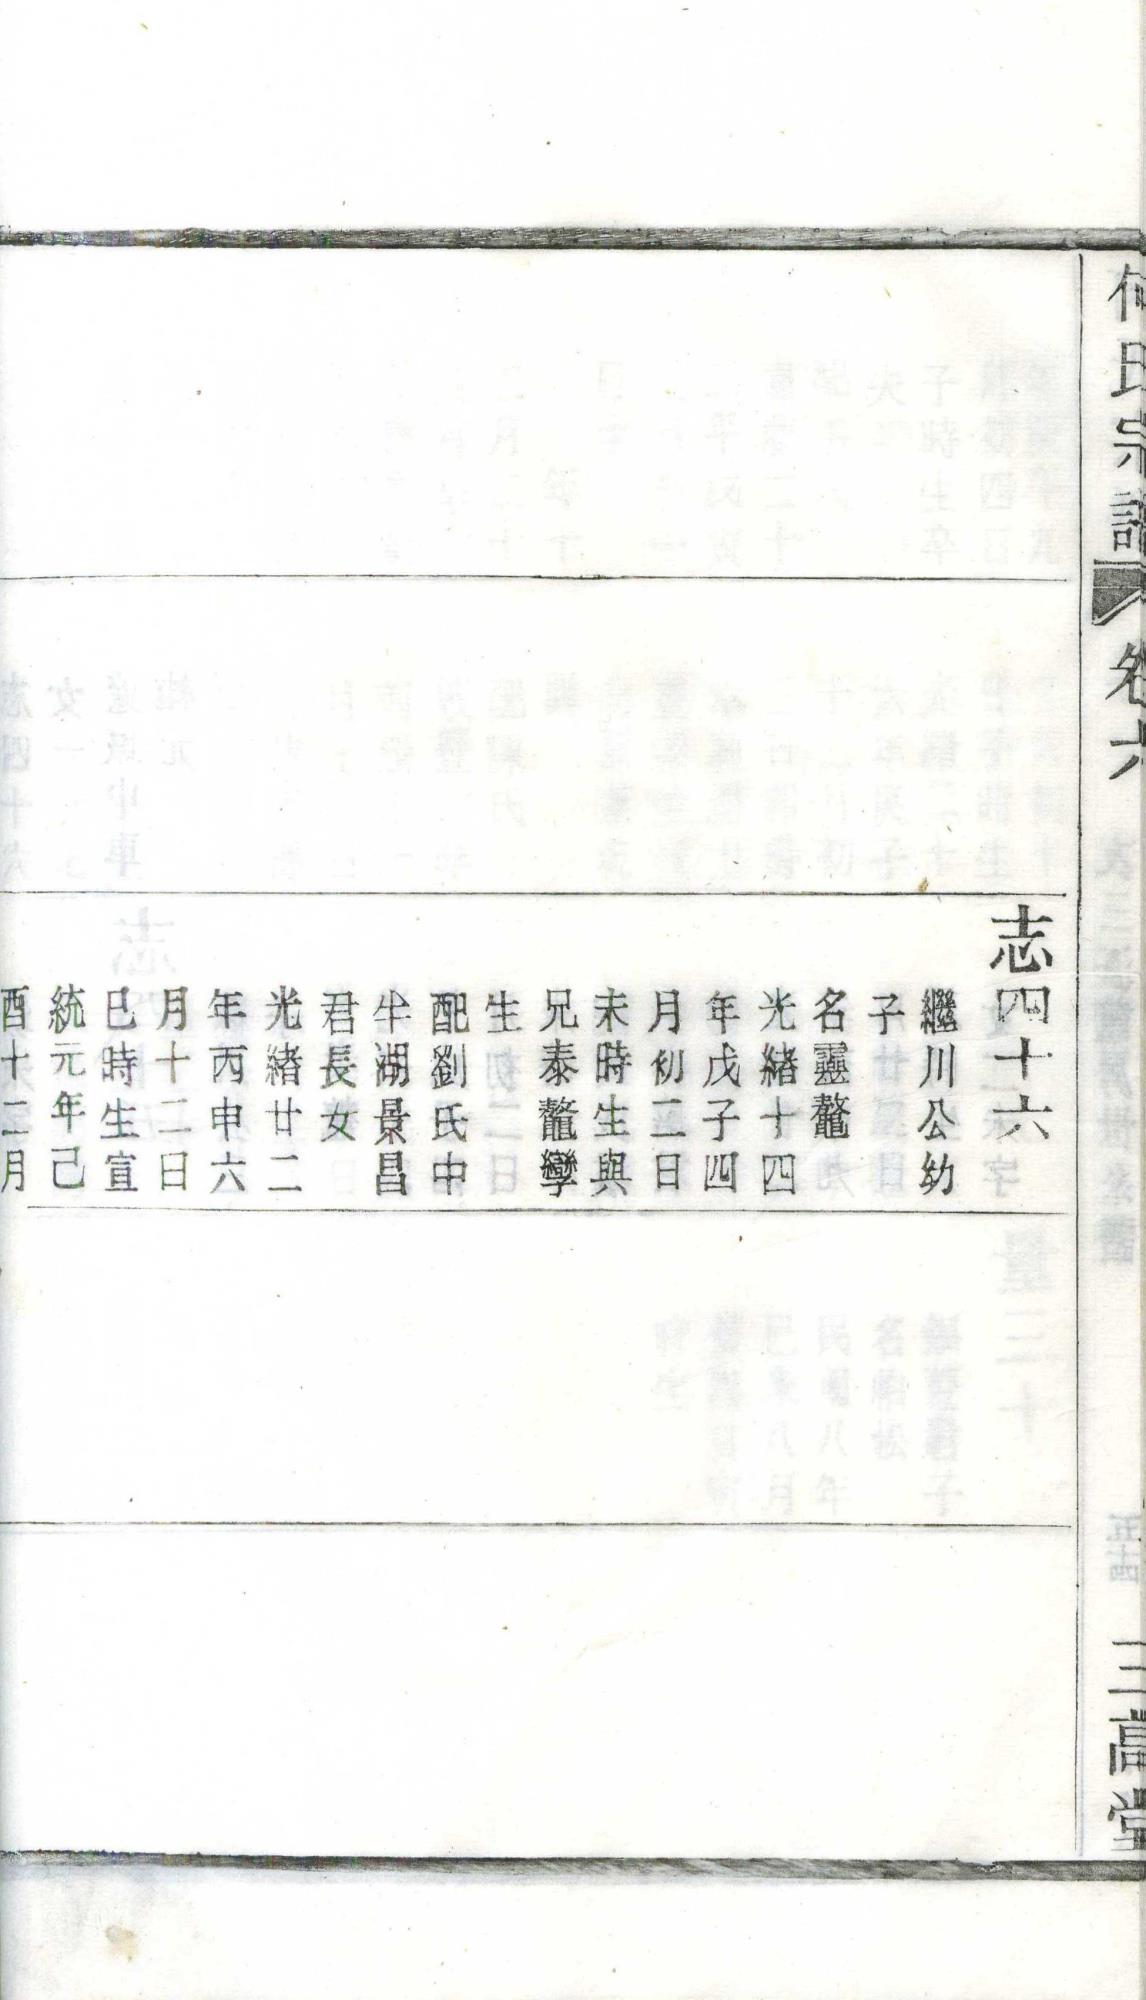 何氏宗譜
卷六
三高堂
志四十六
繼川公幼
子
名靈鼇
光緒十四
年戊子四
月初二日
未時生與
兄泰鼇孿
生
配劉氏中
牛湖景昌
君長女
光緒廿二
年丙申六
月十二日
巳時生宣
統元年己
酉十二月